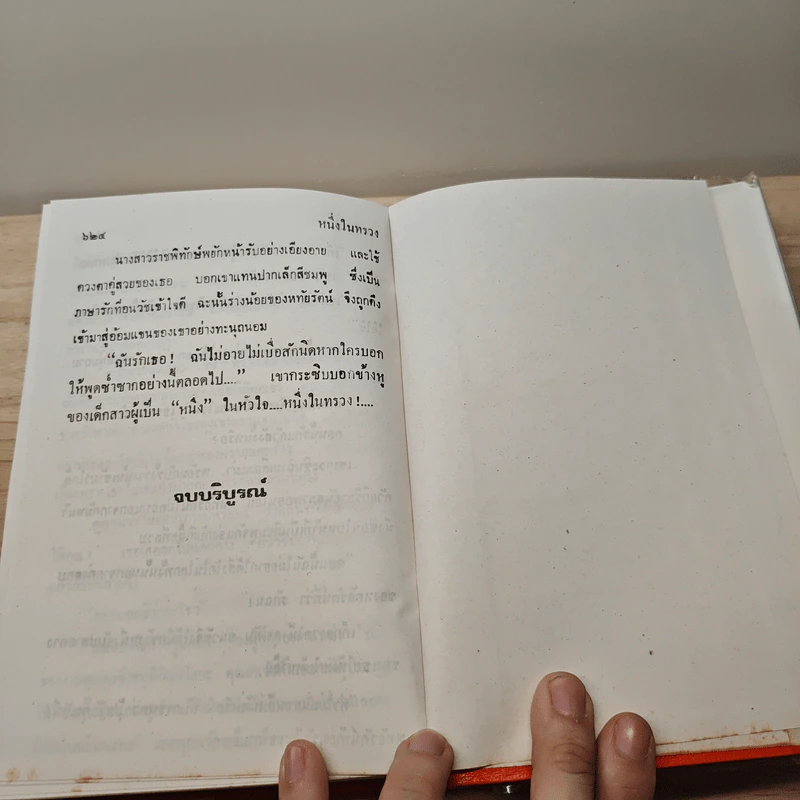 ๖๒๔ หนึ่งในทรวง
นางสาวราชพิทักษ์พยักหน้ารับอย่างเอียงอาย และใช้
ดวงตาคู่สวยของเธอ บอกเขาแทนปากเล็กสีชมพู ซึ่งเป็น
ภาษารักที่อนวัชเข้าใจดี ฉะนั้นร่างน้อยของหทัยรัตน์ จึงถูกดึง
เข้ามาสู่อ้อมแขนของเขาอย่างทะนุถนอม
“ฉันรักเธอ ! ฉันไม่อายไม่เบื่อสักนิดหากใครบอก
ให้พูดซ้ำซากอย่างนี้ตลอดไป....” เขากระซิบบอกข้างหู
ของเด็กสาวผู้เป็น “หนึ่ง” ในหัวใจ....หนึ่งในทรวง !....
จบบริบูรณ์